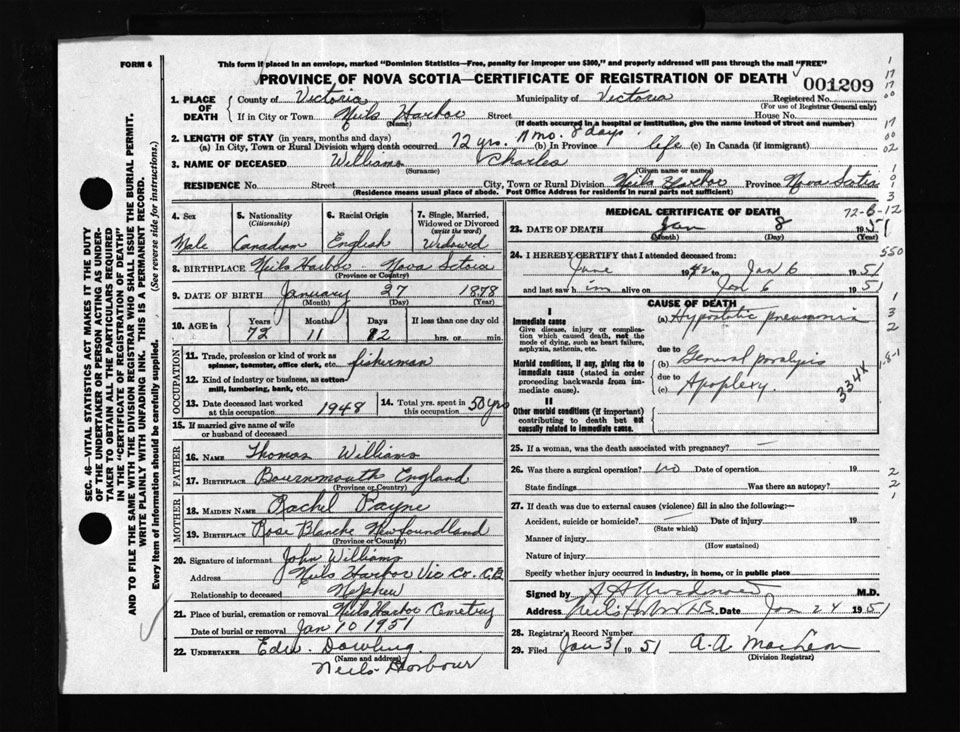 FORM 6
This form if placed in an envelope, marked "Dominion Statistics—Free, penalty for improper use $300," and properly addressed will pass through the mail "FREE"
PROVINCE OF NOVA SCOTIA—CERTIFICATE OF REGISTRATION OF DEATH
001209
1. PLACE OF DEATH County of Victoria Municipality of Victoria Registered No.
(For use of Registrar General only)
If in City or Town Neils Harbor Street House No.
(Name) (If death occurred in a hospital or institution, give the name instead of street and number)
2. LENGTH OF STAY (in years, months and days)
(a) In City, Town or Rural Division where death occurred 72 yrs. 11 mo. 8 days. (b) In Province life (c) In Canada (if immigrant)
3. NAME OF DECEASED Williams Charles
(Surname) (Given name or names)
RESIDENCE No. Street City, Town or Rural Division Neils Harbor Province Nova Scotia
(Residence means usual place of abode. Post Office Address for residents in rural parts not sufficient)
4. Sex Male
5. Nationality (Citizenship) Canadian
6. Racial Origin English
7. Single, Married, Widowed or Divorced (write the word) Widowed
8. BIRTHPLACE Neils Harbor Nova Sctoia
(Province or Country)
9. DATE OF BIRTH January 27 1878
(Month) (Day) (Year)
10. AGE in Years Months Days If less than one day old
72 11 12 hrs. or min.
OCCUPATION
11. Trade, profession or kind of work as spinner, teamster, office clerk, etc. fisherman
12. Kind of industry or business, as cotton-mill, lumbering, bank, etc.
13. Date deceased last worked at this occupation 1948
14. Total yrs. spent in this occupation 50 yrs
15. If married give name of wife or husband of deceased
FATHER
16. NAME Thomas Williams
17. BIRTHPLACE Bournmouth England
(Province or Country)
MOTHER
18. MAIDEN NAME Rachel Payne
19. BIRTHPLACE Rose Blanche Newfoundland
(Province or Country)
20. Signature of informant John Williams
Address Neils Harbor Vic Co. C.B.
Relationship to deceased Nephew
21. Place of burial, cremation or removal Neils Harbor Cemetery
Date of burial or removal Jan 10 1951
22. UNDERTAKER Edw. Dowling
(Name and address)
Neils Harbour
MEDICAL CERTIFICATE OF DEATH
72-6-12
23. DATE OF DEATH Jan 8 1951
(Month) (Day) (Year)
24. I HEREBY CERTIFY that I attended deceased from:
June 1942 to Jan 6 1951
and last saw him alive on Jan 6 1951
550
CAUSE OF DEATH
I
Immediate cause
Give disease, injury or complication which caused death, not the mode of dying, such as heart failure, asphyxia, asthenia, etc.
(a) Hypostatic pneumonia
due to
Morbid conditions, if any, giving rise to immediate cause (stated in order proceeding backwards from immediate cause).
(b) General paralysis
due to
(c) Apoplexy.
334X
II
Other morbid conditions (if important) contributing to death but not causally related to immediate cause.
25. If a woman, was the death associated with pregnancy? —
26. Was there a surgical operation? no Date of operation 19
State findings Was there an autopsy?
27. If death was due to external causes (violence) fill in also the following:—
Accident, suicide or homicide? Date of injury 19
(State which)
Manner of injury
(How sustained)
Nature of injury
Specify whether injury occurred in industry, in home, or in public place
Signed by M.D.
Address Date Jan 24 1951
28. Registrar's Record Number
29. Filed Jan 31 1951 A.A. MacLean
(Division Registrar)
SEC. 46—VITAL STATISTICS ACT MAKES IT THE DUTY
OF THE UNDERTAKER OR PERSON ACTING AS UNDER-
TAKER TO OBTAIN ALL THE PARTICULARS REQUIRED
IN THE "CERTIFICATE OF REGISTRATION OF DEATH"
AND TO FILE THE SAME WITH THE DIVISION REGISTRAR WHO SHALL ISSUE THE BURIAL PERMIT.
WRITE PLAINLY WITH UNFADING INK. THIS IS A PERMANENT RECORD.
Every item of information should be carefully supplied. (See reverse side for instructions.)